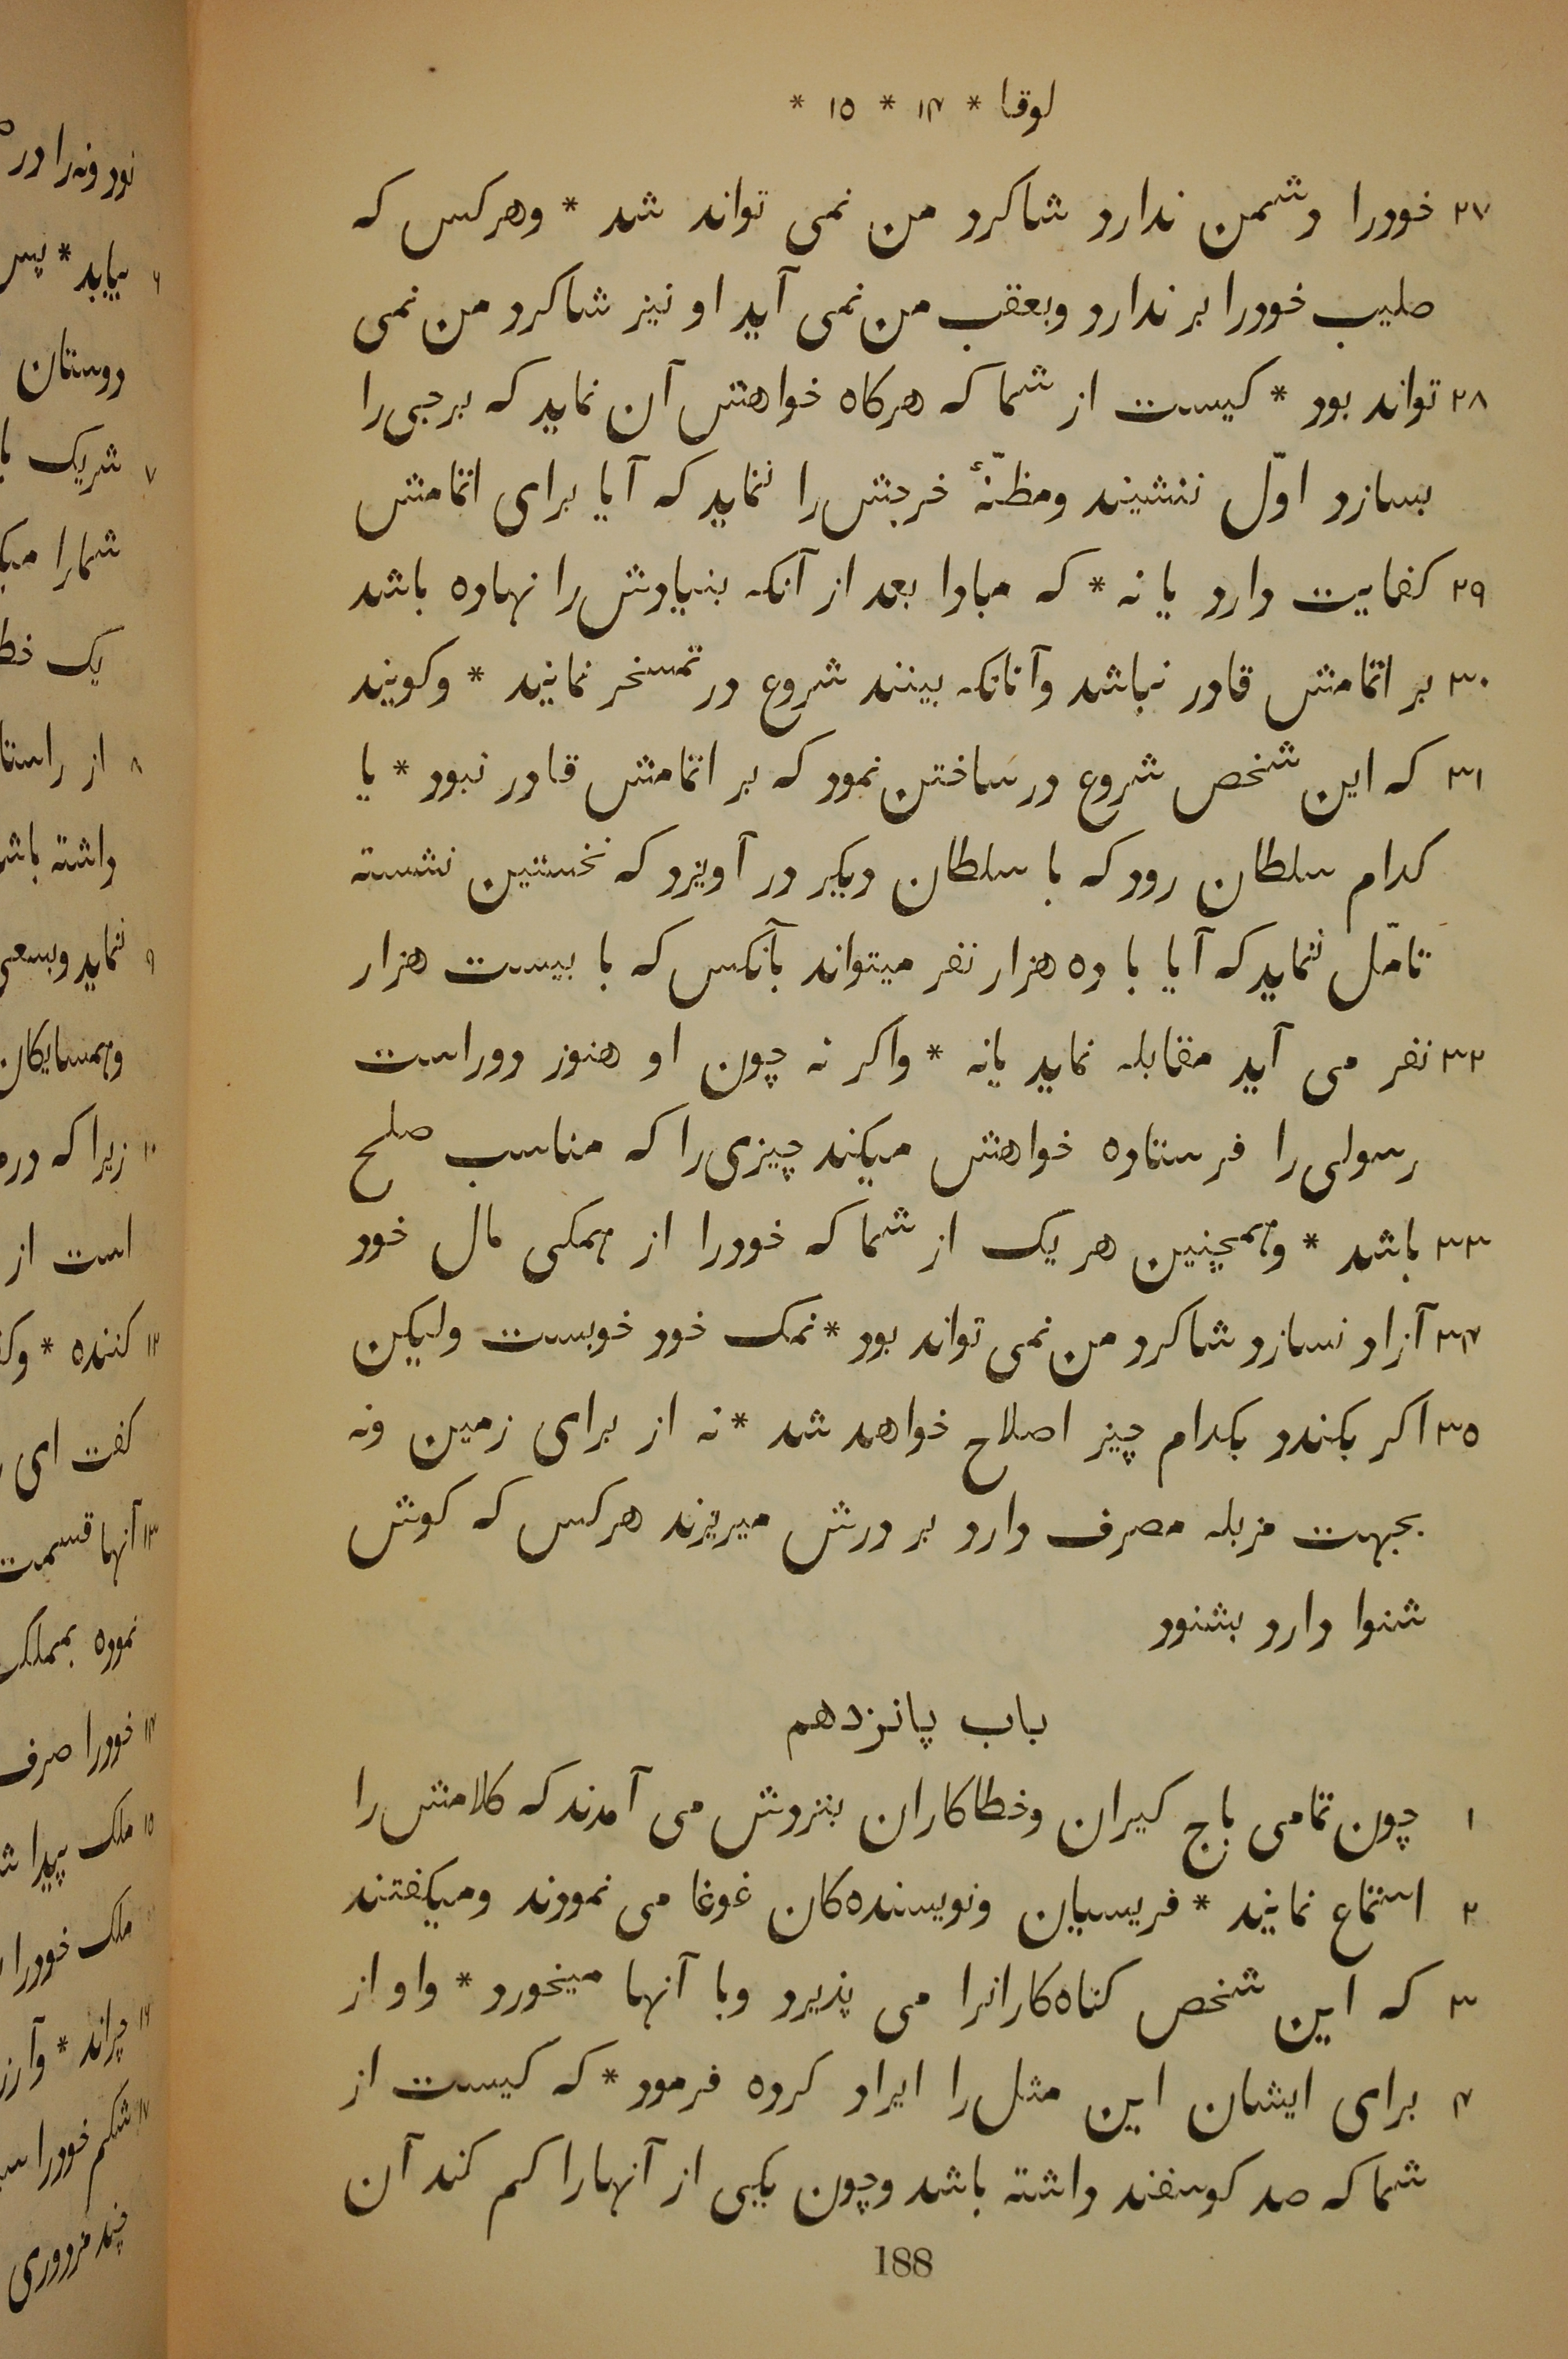 لوقا * ۱۴ * ۱۵ *
۲۷ خودرا دشمن ندارد شاکرد من نمی تواند شد * وهرکس که
صلیب خودرا بر ندارد وبعقب من نمی آید او نیز شاکرد من نمی
۲۸ تواند بود * کیست از شما که هرکاه خواهش آن نماید که برجی را
بسازد اوّل ننشیند ومظنّهٔ خرجش را ننماید که آیا برای اتمامش
۲۹ کفایت دارد یا نه * که مبادا بعد از آنکه بنیادش را نهاده باشد
۳۰ بر اتمامش قادر نباشد وآنانکه بینند شروع در تمسخر نمایند * وکویند
۳۱ که این شخص شروع در ساختن نمود که بر اتمامش قادر نبود * یا
کدام سلطان رود که با سلطان دیکر در آویزد که نخستین نشسته
تامّل ننماید که آیا با ده هزار نفر میتواند بآنکس که با بیست هزار
۳۲ نفر می آید مقابله نماید یانه * واکر نه چون او هنوز دوراست
رسولی را فرستاده خواهش میکند چیزی را که مناسب صلح
۳۳ باشد * وهمچنین هر یک از شما که خودرا از همکی مال خود
۳۴ آزاد نسازد شاکرد من نمی تواند بود * نمک خود خوبست ولیکن
۳۵ اکر بکندد بکدام چیز اصلاح خواهد شد * نه از برای زمین ونه
بجهت مزبله مصرف دارد بر درش میریزند هرکس که کوش
شنوا دارد بشنود
باب پانزدهم
۱ چون تمامی باج کیران وخطاکاران بنزدش می آمدند که کلامش را
۲ استماع نمایند * فریسیان ونویسنده‌کان غوغا می نمودند ومیکفتند
۳ که این شخص کناه‌کارانرا می پذیرد وبا آنها میخورد * واو از
۴ برای ایشان این مثل را ایراد کرده فرمود * که کیست از
شما که صد کوسفند داشته باشد وچون یکیی از آنهارا کم کند آن
188
نود ونه‌را در
۶ بیابد * پس
دوستان
۷ شریک
شمارا
یک
۸ از
داشته
۹ ننماید
وهمسایکان
۱۰ زیرا که
است از
۱۲ کننده *
کفت ای
۱۳ آنها قسمت
نموده
۱۴ خودرا صرف
۱۵ ملک پیدا
ملک خودرا
۱۶ چراند *
۱۷ شکم خودرا
چند مزدوری